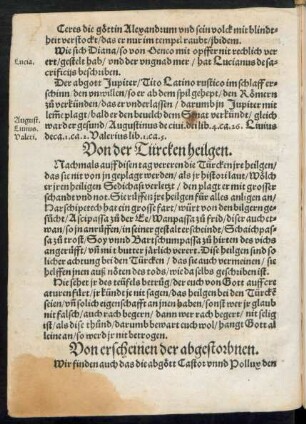 Ceres die göttin Alexandrum vnd sein volck mit blindt-
heit verstockt/das er nur im tempel raubt/ibidem.
Wie sich Diana/so von Geneo mit opffer nit rechtlich ver
ert/gestelt hab/vnd der vngnad mer/hat Lucianus de sa-
Lucia.
crificijs beschriben.
Der abgott Jupiter/Tito Latino rustico im schlaff er-
schinn den vnwillen/so er ab dem spil gehept/den Römern
zů verkünden/das er vnderlassen/darumb jn Jupiter mit
lemē plagt/bald er den beuelch dem Senat verkünt/gleich
August.
war der gesund/Augustinus de ciui.dei lib.4.ca.26. Liuius
Liuius.
deca.1.ca.2. Valerius lib.1.ca.5.
Valeri.
Von der Türcken heilgen.
Nachmals auff disen tag vereren die Türcken jre heilgen/
das sie nit von jn geplagt werden/als jr histori laut/Wölch
er jren heilgen Sedichasi verletzt/den plagt er mit grosser
schand vnd not. Sie rüffen jre heilgen für alles anligen an/
Harschipetech hat ein grosse fart/würt von den bilgern ge-
sůcht/Ascipassa zů der Ee/Wanpassa zů frid/dise auch et-
wan/so jn anrůffen/in seiner gestalt erscheindt/Schaichpas-
sa zů trost/Goy vnnd Bartschumpassa zů hirten des vichs
angerůfft/vñ mit butter järlich vereert. Dise heilgen sind so
licher achtung bei den Türcken/das sie auch vermeinen/sie
helffen jnen auß nöten des tods/wie da selbs geschriben ist.
Hie sehet jr des teüfels betrůg/der euch von Gott auff cre
aturen fürt/jr künd je nit sagen/das heilgen bei den Türckē
seien/vñ solich eigenschafft an jnen haben/sonst wer jr glaub
nit falsch/auch rach begern/dann wer rach begert/nit selig
ist/als dise thůnd/darumb bewart euch wol/hangt Gott al
leine an/so werd jr nit betrogen.
Von erscheinen der abgestorbnen.
Wir finden auch das die abgött Castor vnnd Pollux den